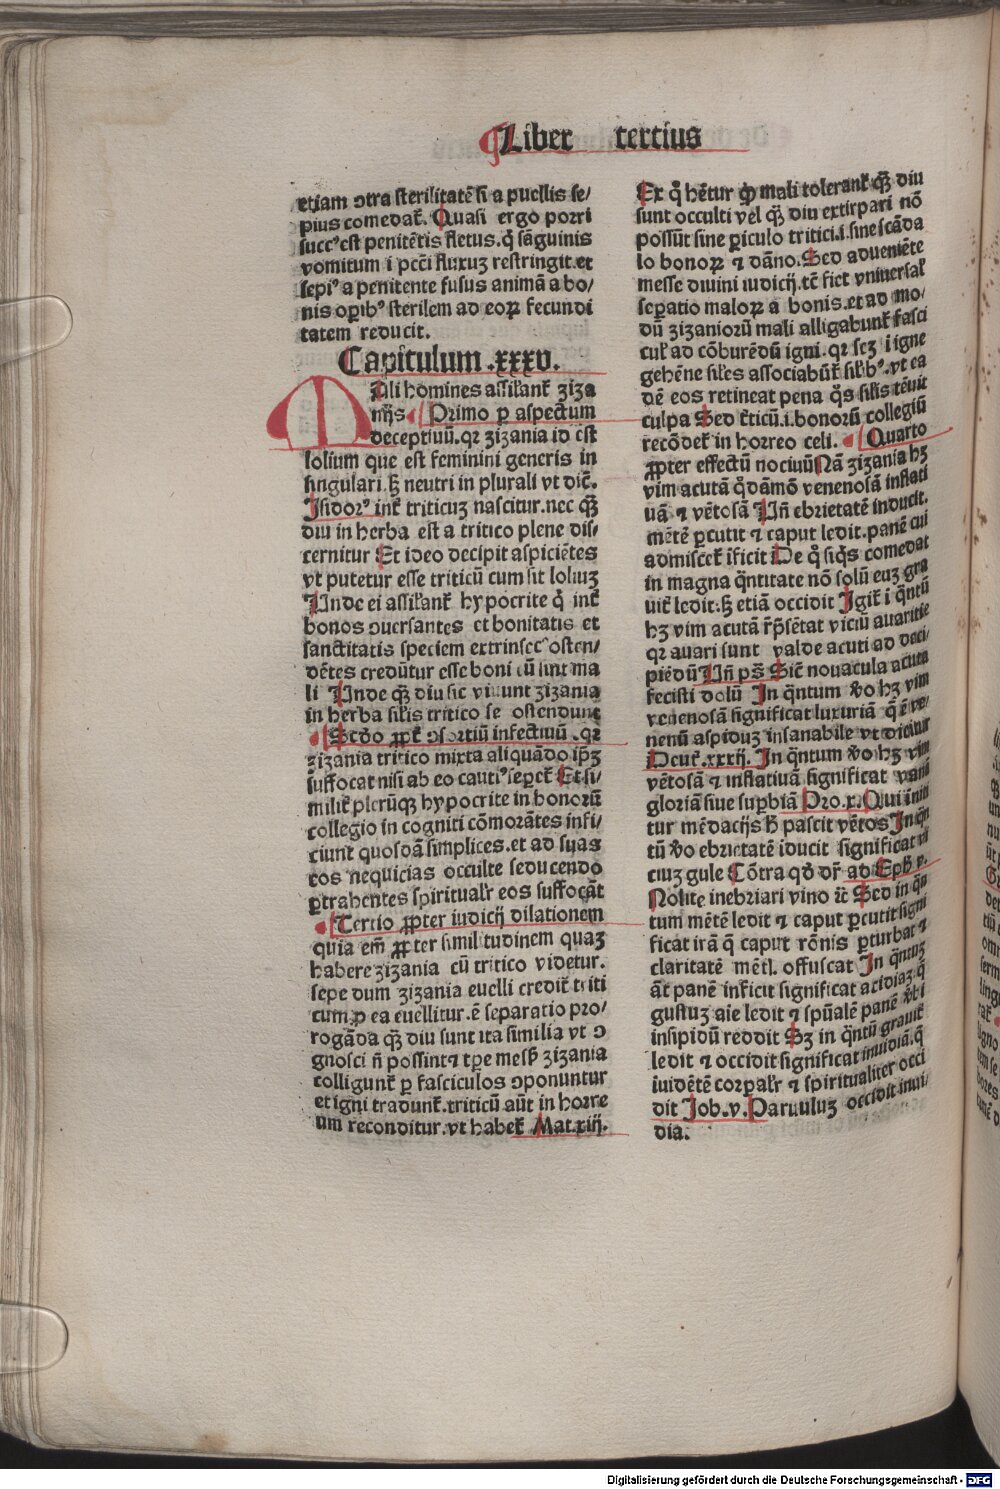 Liber tertius
etiam ↄtra sterilitatē si a puellis se/
pius comedat᷑. Quasi ergo porri
succꝰ est penitētis fletus. q̄ sāguinis
vomitum i pctī fluxuꝫ restringit. et
sepiꝰ a penitente fusus animā a bo/
nis opibꝰ sterilem ad eoꝝ fecundi
tatem reducit.
Capitulum .xxxv.
Mali homines assilant᷑ ziza
nijs. Primo ꝑ aspectum
deceptiuū. qꝛ zizania id est
lolium que est feminini generis in
singulari. sꝫ neutri in plurali vt dic̄.
Isidorꝰ int᷑ triticuꝫ nascitur. nec qꝫ
diu in herba est a tritico plene dis/
cernitur Et ideo decipit aspiciētes
vt putetur esse triticū cum sit loliuꝫ
Unde ei assilant᷑ hypocrite q̄ int᷑
bonos ↄuersantes et bonitatis et
sanctitatis speciem extrinsecꝰ osten/
dētes credūtur esse boni cū sint ma
li Unde qꝫ diu sic viuunt zizania
in herba silis tritico se ostendunt
Scd̄o ꝓpt᷑ ↄsortiū infectiuū. qꝛ
zizania tritico mixta aliquādo ip̄ꝫ
suffocat nisi ab eo cautiꝰ seꝑet᷑ Et si/
milit᷑ plerūqꝫ hypocrite in bonorū
collegio in cogniti cōmorātes infi/
ciunt quosdā simplices. et ad suas
eos nequicias occulte seducendo
ꝑtrahentes spiritualr̄ eos suffocāt
Tertio ꝓpter iudicij dilationem
quia em̄ ꝓpter simil tudinem quaꝫ
habere zizania cū tritico videtur.
sepe dum zizania euelli credit᷑ triti
cum ꝑ ea euellitur. ē separatio pro/
rogāda qꝫ diu sunt ita similia vt ↄ
gnosci n̄ possint ⁊ tꝑe mess̄ zizania
colligunt᷑ ꝑ fasciculos ↄponuntur
et igni tradunt᷑. triticū aūt in horre
um reconditur. vt habet᷑ Mat. xiij.
Ex q̊ hētur ꝙ mali tolerant᷑ qꝫ diu
sunt occulti vel qꝫ diu extirpari nō
possūt sine ꝑiculo tritici. i. sine scāda
lo bonoꝝ ⁊ dāno. Sed adueniēte
messe diuini iudicij. tē fiet vniuersal᷑
seꝑatio maloꝝ a bonis. et ad mo/
dū zizaniorū mali alligabunt᷑ fasci
cul᷑ ad cōburēdū igni. qꝛ scꝫ i igne
gehēne siles associabūt᷑ silibꝰ. vt ea
dē eos retineat pena q̊s silis tēuit
culpa Sed t᷑ticū. i. bonorū collegiū
recōdet᷑ in horreo celi. Quarto
ꝓpter effectū nociuū Nā zizania hꝫ
vim acutā q̄dāmō venenosā inflati
uā ⁊ vētosā Un̄ ebrietatē inducit.
mētē ꝑcutit ⁊ caput ledit. panē cui
admiscet᷑ ificit De q̊ siq̊s comedat
in magna q̄ntitate nō solū euꝫ gra
uit᷑ ledit: sꝫ etiā occidit Igit᷑ i q̄ntū
hꝫ vim acutā rp̄sētat viciū auaritie
qꝛ auari sunt valde acuti ad deci/
piēdū Un̄ ps̄ Sic̄ nouacula acuta
fecisti dolū In q̄ntum v̊o hꝫ vim
venenosā significat luxuriā q̄ ē ve/
nenū aspiduꝫ insanabile vt dicitur
Deut᷑. xxxij. In q̄ntum v̊o hꝫ vim
vētosā ⁊ inflatiuā significat vanā
gloriā siue suꝑbiā Pro. x. Qui initi
tur mēdacijs h̄ pascit vētos In q̄n
tū v̊o ebrietatē iducit significat vi
ciuꝫ gule Cōtra qd̊ dr̄ ad Eph̄ v.
Nolite inebriari vino ⁊c̄ Sed in q̄n
tum mētē ledit ⁊ caput ꝑcutit signi
ficat irā q̄ caput rōnis ꝑturbat ⁊
claritatē mētl. offuscat In q̄ntuꝫ
āt panē inficit significat acidiaꝫ q̄
gustuꝫ aie ledit ⁊ spūalē panē v̊bi
insipidū reddit Sꝫ in q̄ntū grauit᷑
ledit ⁊ occidit significat inuidiā. q̄
iuidētē corꝑalr̄ ⁊ spiritualiter occi
dit Job. v. Paruuluꝫ occidit inui/
dia.
Digitalisierung gefördert durch die Deutsche Forschungsgemeinschaft - DFG